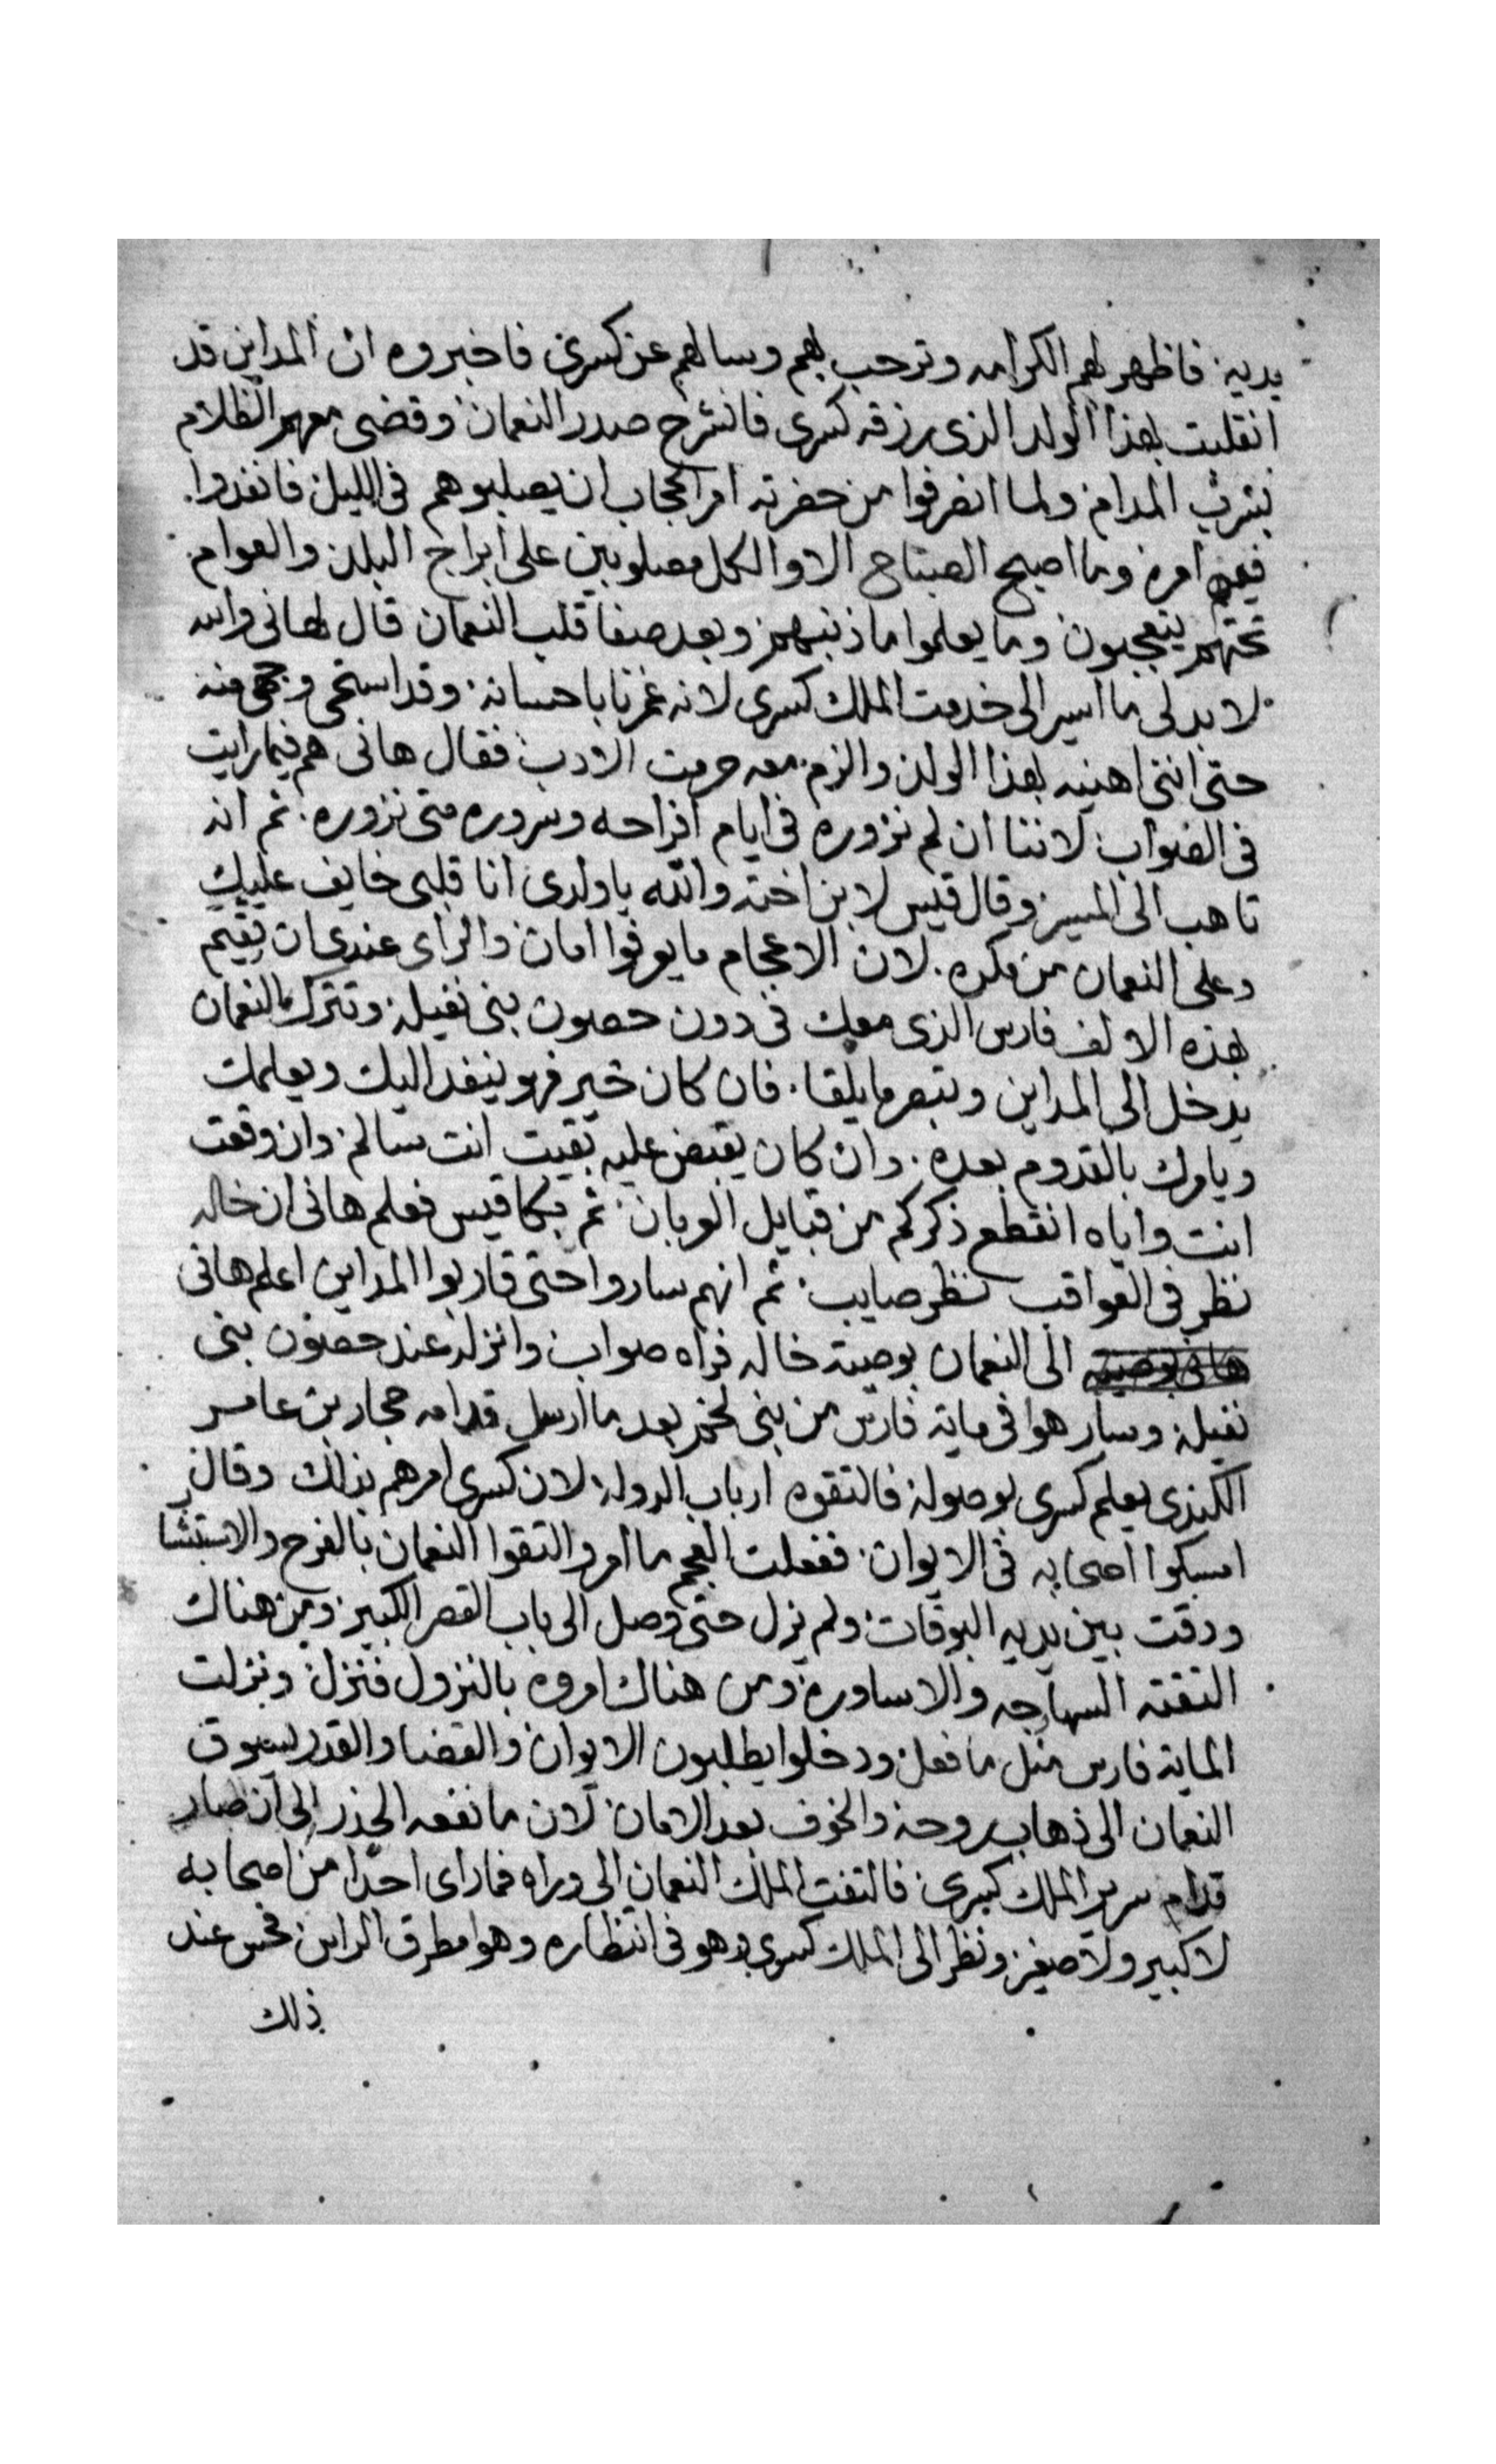 يديه فاظهر لهم الكرامه وترحب بهم وسالهم عن كسرى فاخبروه ان المداين قد
انقلبت بهذا الولد الذى رزقه كسرى فانشرح صدر النعمان وقضى معهم الظلام
بشرب المدام ولما انصرفوا من حضرته امر الحجاب ان يصلبوهم فى الليل فانفدوا
فيهم امره وما اصبح الصباح الا والكل مصلوبين على ابراج البلد والعوام
تحتهم يتعجبون وما يعلموا ما ذنبهم وبعد صفا قلب النعمان قال لهانى والله
لا بد لى ما اسير الى خدمت الملك كسرى لانه غمرنا باحسانه وقد استحى وجهى منه
حتى اننى اهنيه بهذا الولد والزم معه حرمت الادب فقال هانى هم فيما رايت
فى الصواب لاننا ان لم نزوره فى ايام افراحه وسروره متى نزوره ثم انه
تاهب الى المسير وقال قيس لابن اخته والله ياولدى انا قلبى خايف عليك
وعلى النعمان من مكره لان الاعجام ما يوفوا امان والراى عندى ان تقيم
بهذه الالف فارس الذى معك فى دون حصون بنى نفيله وتترك النعمان
يدخل الى المداين وتبصر ما يلقا فان كان خير فهو ينفد اليك ويعلمك
ويامرك بالقدوم بعده وان كان يقبض عليه بقيت انت سالم وان وقعت
انت واياه انقطع ذكركم من قبايل العربان ثم بكا قيس فعلم هانى ان خاله
نظر فى العواقب نظر صايب ثم انهم ساروا حتى قاربوا المداين اعلم هانى
هانى بوصيته الى النعمان بوصية خاله فراه صواب وانزله عند حصون بنى
نفيله وسار هوا فى ماية فارس من بنى لخم بعد ما ارسل قدامه حجار بن عامر
الكندى يعلم كسرى بوصوله فالتقوه ارباب الدوله لان كسرى امرهم بذلك وقال
امسكوا اصحابه فى الايوان ففعلت العجم ما امر والتقوا النعمان بالفرح والاستبشا
ودقت بين يديه البوقات ولم يزل حتى وصل الى باب القصر الكبير ومن هناك
التقته السهارجه والاساوره ومن هناك امروه بالنزول فنزل ونزلت
الماية فارس مثل ما فعل ودخلوا يطلبون الايوان والقضا والقدر يسوق
النعمان الى ذهاب روحه والخوف بعد الامان لان ما نفعه الحذر الى ان صار
قدام سرير الملك كسرى فالتفت الملك النعمان الى وراه فما راى احدا من اصحابه
لا كبير ولا صغير ونظر الى الملك كسرى وهو فى انتظاره وهوا مطرق الراس فحس عند
ذلك